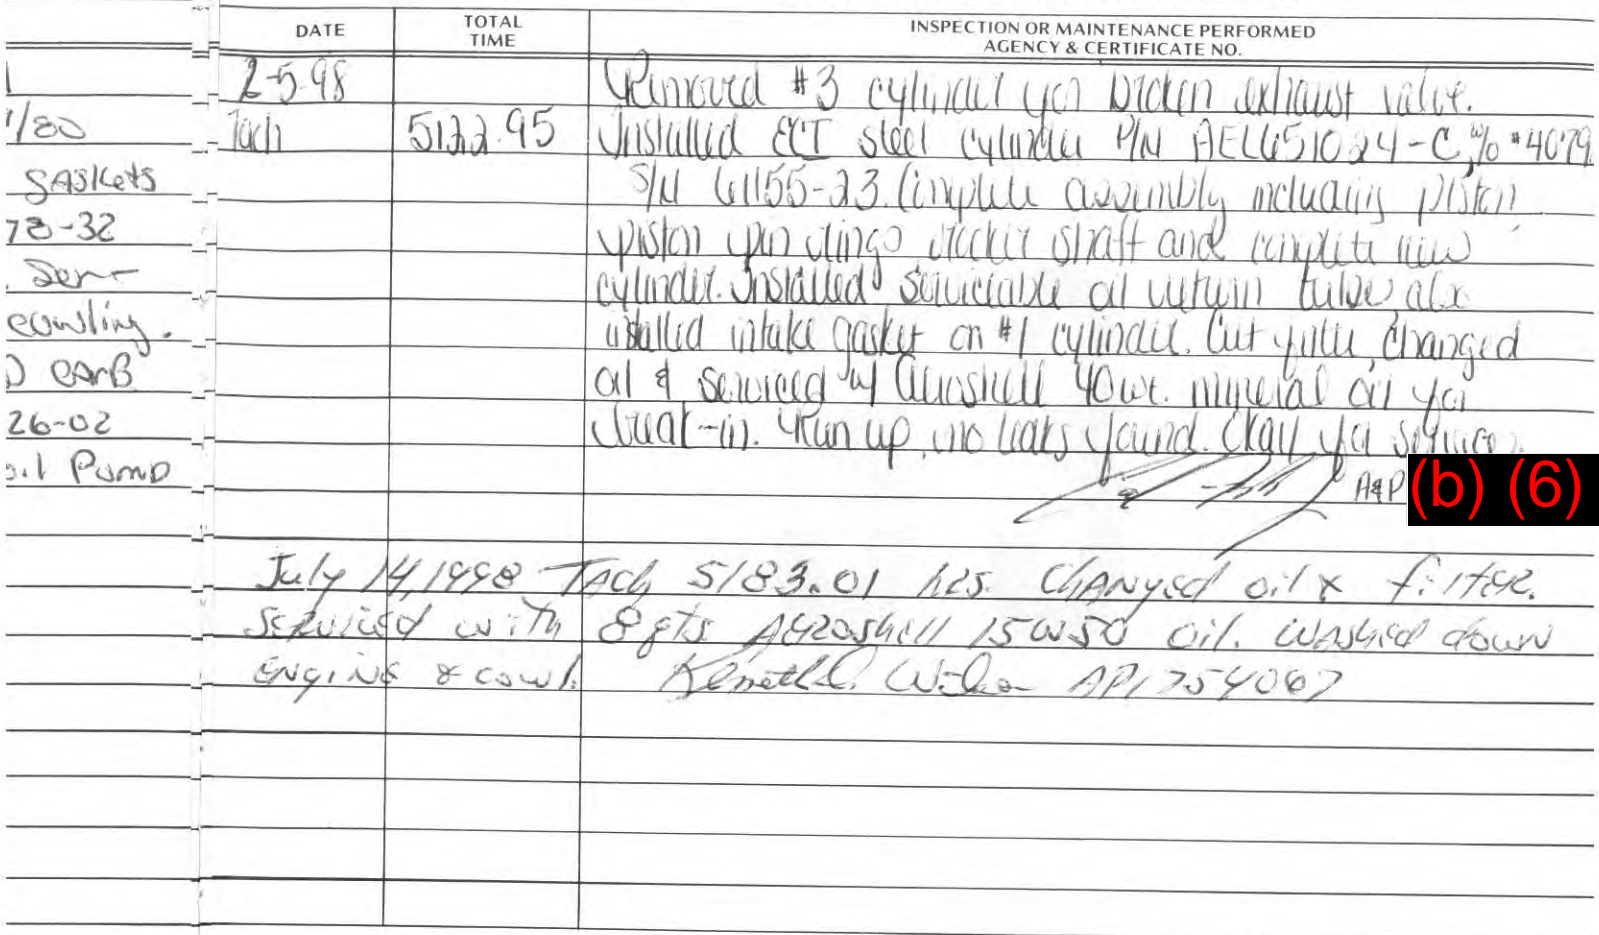 DATE
TOTAL TIME
INSPECTION OR MAINTENANCE PERFORMED
AGENCY & CERTIFICATE NO.
/80
gaskets
78-32
Ser-
cowling.
carb
26-02
oil Pump
2-5-98 Removed #3 cylinder for broken exhaust valve.
Tach 5122.95 Installed ECI steel cylinder P/N AEL651024-C, w/o #4079
S/N 61155-23. Complete assembly including piston
piston pin rings rocker shaft and complete new
cylinder. Installed serviciable oil return tube, also
installed intake gasket on #1 cylinder. Cut filter, changed
oil & serviced w/ Aeroshell 40wt. mineral oil for
break-in. Run up, no leaks found. Okay for service.
A&P (b) (6)
July 14, 1998 Tach 5183.01 hrs. Changed oil & filter.
Serviced with 8 qts Aeroshell 15W50 oil. Washed down
engine & cowl. Kenneth C. AP1754067